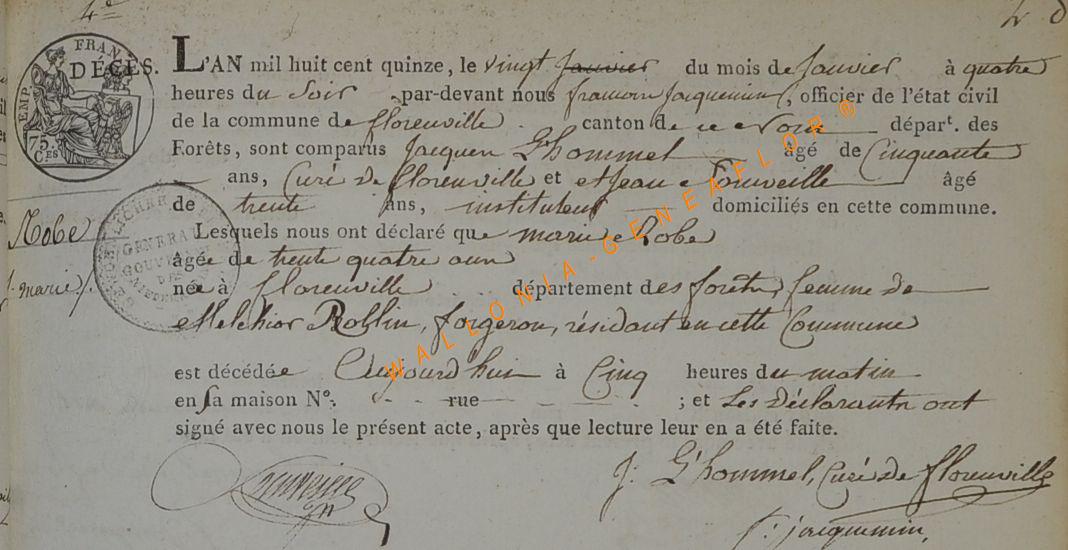 4e
48
FRAN
EMP.
75.
CES
DÉCÈS. L'AN mil huit cent quinze, le vingt Janvier du mois de Janvier à quatre
heures du Soir par-devant nous francois Jacquemin, officier de l'état civil
de la commune de florenville. canton de ce Nom départ. des
Forêts, sont comparus Jacques G'hommel âgé de Cinquante
ans, Curé de florenville et et Jean âgé
de trente ans, instituteur domiciliés en cette commune.
Robe
marie
Lesquels nous ont déclaré que marie Robe
âgée de trente quatre ans
née à florenville département des forêts, femme de
Melchior Roblin, forgeron, résidant en cette Commune
est décédée Aujourd'huis à Cinq heures du matin
en sa maison N°. rue ; et Les déclarants ont
signé avec nous le présent acte, après que lecture leur en a été faite.
J: G'hommel, Curé de florenville
f. jacquemin,
WALLONIA-GENEAFLOR®